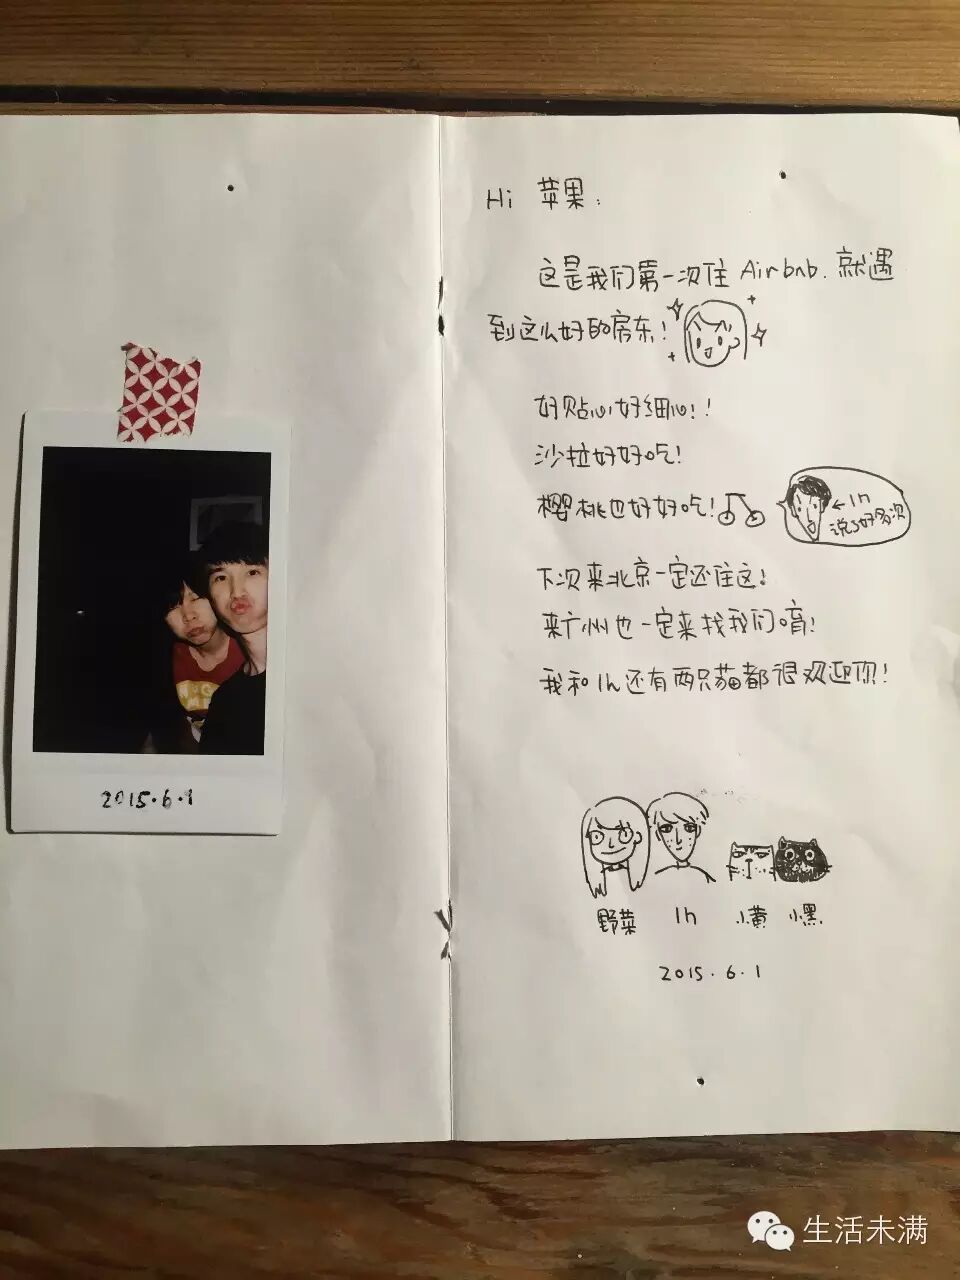 Hi 苹果：
这是我们第一次住 Airbnb. 就遇
到这么好的房东！
好贴心好细心！！
沙拉好好吃！
樱桃也好好吃！
←1h
说了好多次
下次来北京一定还住这！
来广州也一定来找我们唷！
我和1h还有两只猫都很欢迎你！
野菜 1h 小黄 小黑
2015.6.1
2015.6.1
生活未满